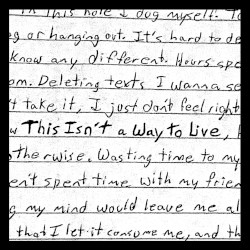 In this hole I dug myself. To
g or hanging out. It's hard to de
know any different. Hours spe
om. Deleting texts I wanna se
't take it, I just don't feel right
w This Isn't a Way to Live,
therwise. Wasting time to my
en't spent time with my frie
g my mind would leave me al
that I let it consume me, and th